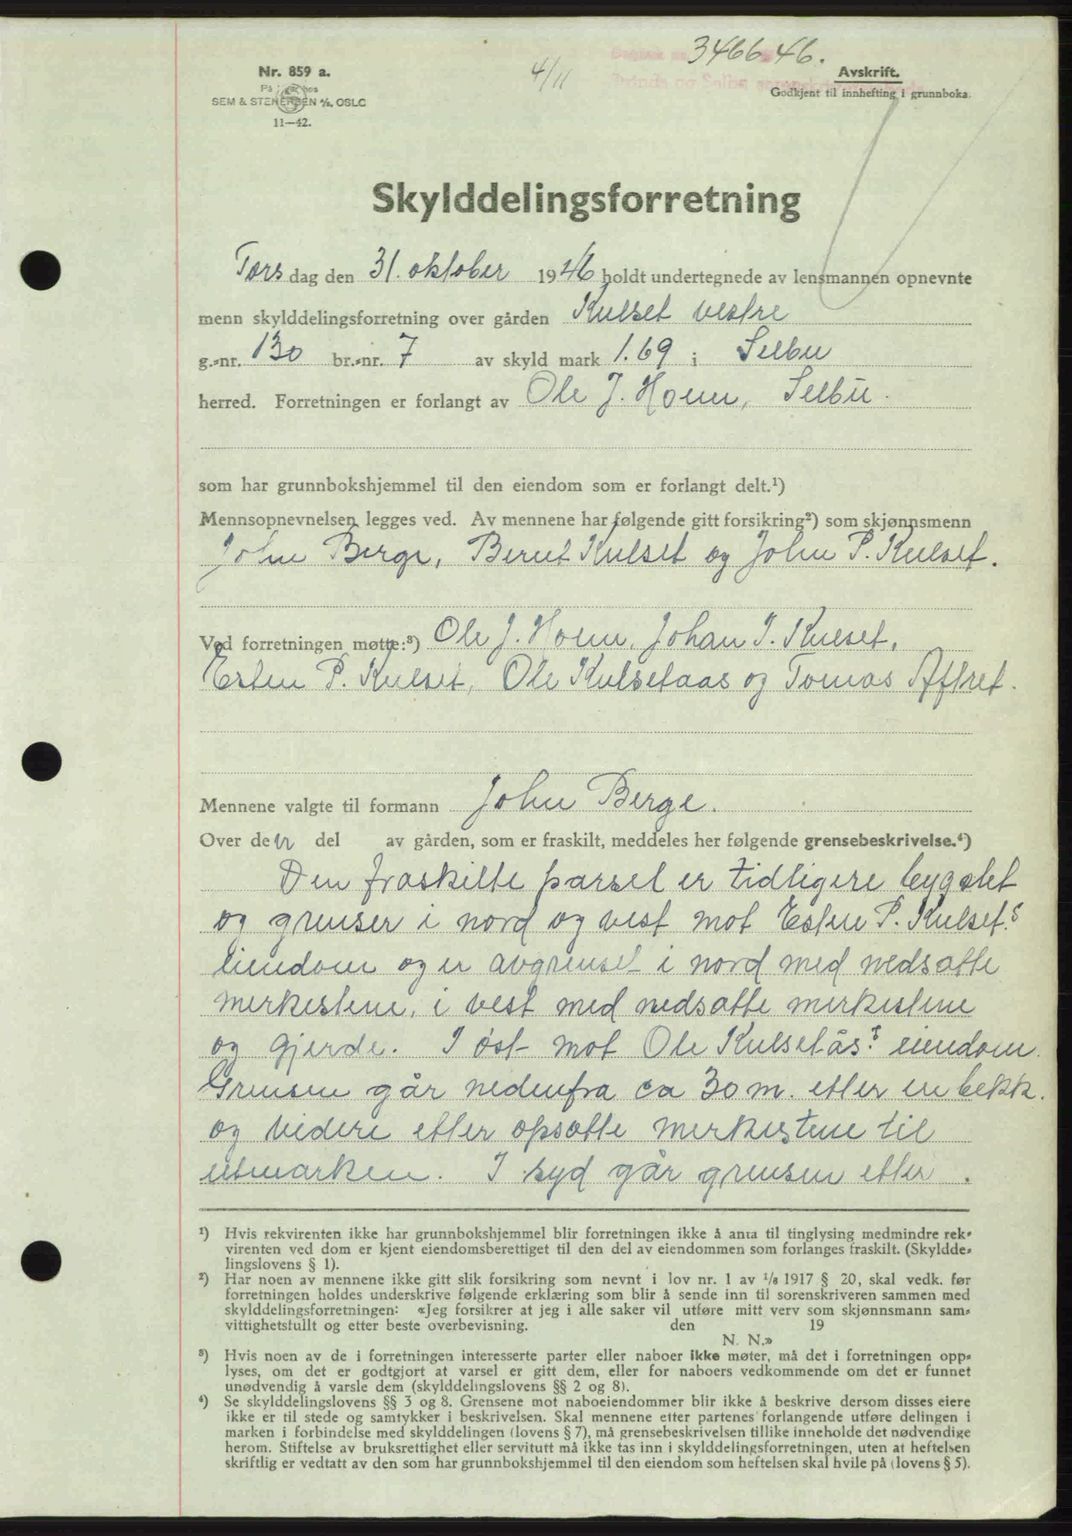 3466 46.
4/11
Nr. 859 a.
SEM & STENERSEN A/S, OSLO
11—42.
Avskrift.
Godkjent til innhefting i grunnboka.
Skylddelingsforretning
Tors dag den 31. oktober 1946 holdt undertegnede av lensmannen opnevnte
menn skylddelingsforretning over gården Kulset vestre
g.-nr. 130 br.-nr. 7 av skyld mark 1.69 i Selbu
herred. Forretningen er forlangt av Ole J. Hoem, Selbu.
som har grunnbokshjemmel til den eiendom som er forlangt delt.¹)
Mennsopnevnelsen legges ved. Av mennene har følgende gitt forsikring²) som skjønnsmenn
John Berge, Bernt Kulset og John P. Kulset.
Ved forretningen møtte:³) Ole J. Hoem, Johan J. Kulset,
Esten P. Kulset, Ole Kulsetaas og Tomas Aftret.
Mennene valgte til formann John Berge.
Over den del av gården, som er fraskilt, meddeles her følgende grensebeskrivelse.⁴)
Den fraskilte parsel er tidligere bygslet
og grenser i nord og vest mot Esten P. Kulset.s
eiendom og er avgrenset i nord med nedsatte
merkestene, i vest med nedsatte merkestene
og gjerde. I øst mot Ole Kulsetås.s eiendom.
Grensen går nedenfra ca 30 m. etter en bekk.
og videre etter opsatte merkestene til
utmarken. I syd går grensen etter
¹) Hvis rekvirenten ikke har grunnbokshjemmel blir forretningen ikke å anta til tinglysing medmindre rek-
virenten ved dom er kjent eiendomsberettiget til den del av eiendommen som forlanges fraskilt. (Skyldde-
lingslovens § 1).
²) Har noen av mennene ikke gitt slik forsikring som nevnt i lov nr. 1 av 1/8 1917 § 20, skal vedk. før
forretningen holdes underskrive følgende erklæring som blir å sende inn til sorenskriveren sammen med
skylddelingsforretningen: «Jeg forsikrer at jeg i alle saker vil utføre mitt verv som skjønnsmann sam-
vittighetsfullt og etter beste overbevisning. den 19
N. N.»
³) Hvis noen av de i forretningen interesserte parter eller naboer ikke møter, må det i forretningen opp-
lyses, om det er godtgjort at varsel er gitt dem, eller for naboers vedkommende om det er funnet
unødvendig å varsle dem (skylddelingslovens §§ 2 og 8).
⁴) Se skylddelingslovens §§ 3 og 8. Grensene mot naboeiendommer blir ikke å beskrive dersom disses eiere
ikke er til stede og samtykker i beskrivelsen. Skal mennene etter partenes forlangende utføre delingen i
marken i forbindelse med skylddelingen (lovens § 7), må grensebeskrivelsen tillike inneholde det nødvendige
herom. Stiftelse av bruksrettighet eller servitutt må ikke tas inn i skylddelingsforretningen, uten at heftelsen
skriftlig er vedtatt av den som har grunnbokshjemmel til den eiendom som heftelsen skal hvile på (lovens § 5).